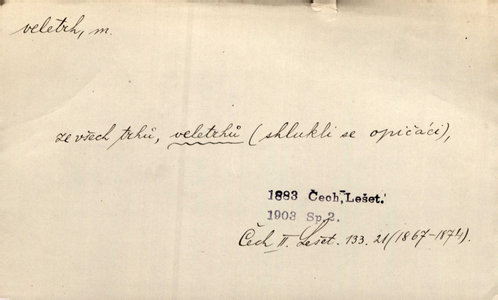 veletrh, m.
ze všech trhů, veletrhů (shlukli se opičáci),
1883 Čech, Lešet.
1903 Sp. 2.
Čech II. Lešet. 133. 21 (1867-1874).